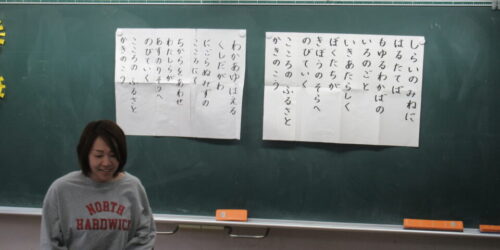 しらいの みねに
はるたてば
もゆるわかばの
いろのごと
いきあたらしく
ぼくたちが
きぼうのそらへ
のびていく
こころの ふるさと
かきのこう
わかあゆはえる
くしだがわ
にごらぬみずの
こころにて
ちからをあわせ
わたしらが
あすのりそうへ
のびていく
こころの ふるさと
かきのこう
NORTH
HARDWICK